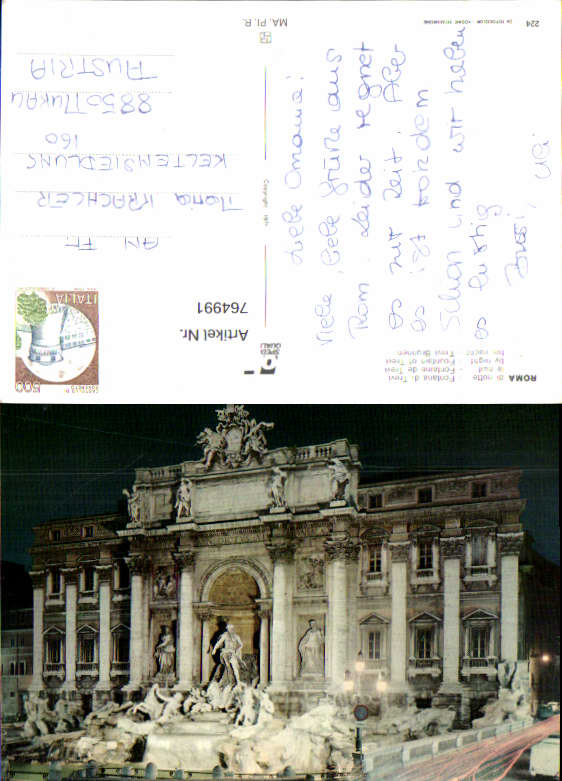 ROMA
di notte - Fontana di Trevi
la nuit - Fontaine de Trevi
by night - Fountain of Trevi
bei nacht - Trevi Brunnen
SPEED
QUALI
Artikel Nr.
764991
Liebe Omama!
Viele liebe Grüße aus
Rom. Leider regnet
es zur Zeit. Aber
es ist trotzdem
schön und wir haben
es lustig
Bussi, Uli
Copyright
ITALIA
500
AN FR.
Maria KRACHLER
KELTENSIEDLUNG
160
8850 MURAU
AUSTRIA
MA. PI. R.
224